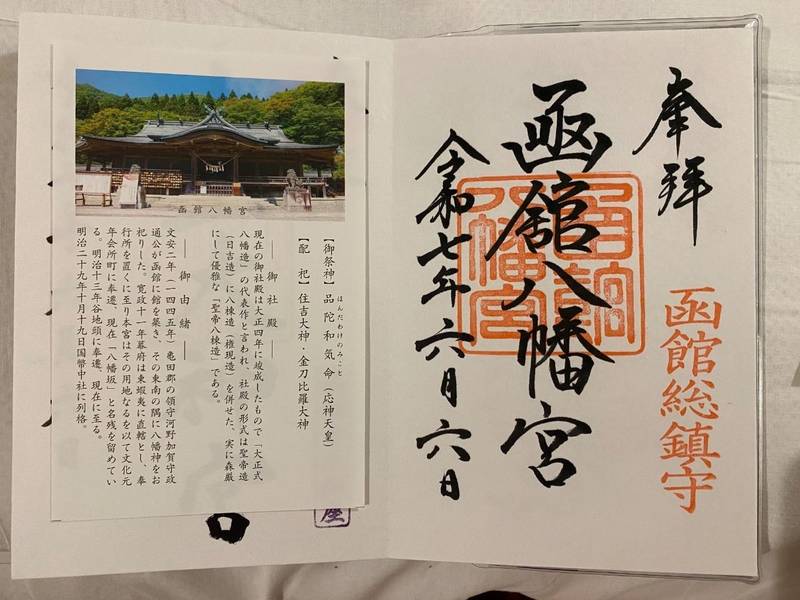 奉拝
函館総鎮守
函館八幡宮
函館八幡宮
令和七年六月六日
函館八幡宮
【御祭神】品陀和気命（応神天皇）
ほんだわけのみこと
【配　祀】住吉大神・金刀比羅大神
── 御社殿 ──
現在の御社殿は大正四年に竣成したもので「大正式
八幡造」の代表作と言われ、社殿の形式は聖帝造
（日吉造）に八棟造（権現造）を併せた、実に森厳
にして優雅な「聖帝八棟造」である。
── 御由緒 ──
文安二年（一四四五年）亀田郡の領守河野加賀守政
通公が函館に館を築き、その東南の隅に八幡神をお
祀りした。寛政十一年幕府は東蝦夷に直轄とし、奉
行所を置くに至り本宮はその用地なるを以て文化元
年会所町に奉遷、現在「八幡坂」と名残を留めてい
る。明治十三年谷地頭に奉遷、現在に至る。
明治二十九年十月十九日国幣中社に列格。